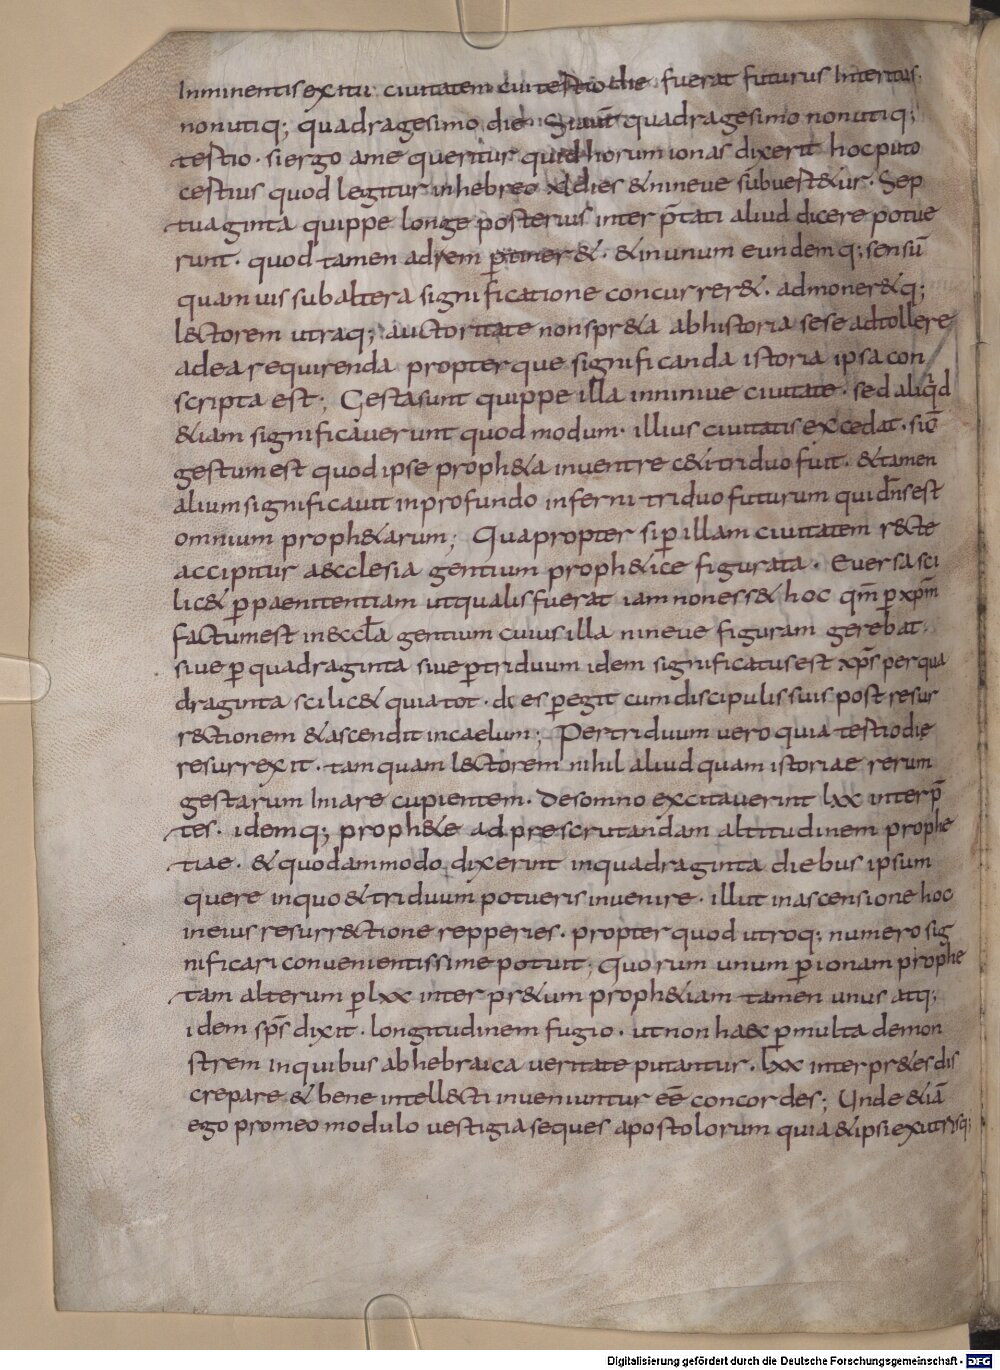 Inminentis exitu civitatem cui testio die fuerat futurus Interitus.
non utiq; quadragesimo die Si aut̄ quadragesimo non utiq;
testio · si ergo a me queritur quid horum ionas dixerit hoc puto
cestius quod legitur in hebreo xl dies & nineve subvest&ur · Sep
tuaginta quippe longe posterius inter p̄tati aliud dicere potue
runt · quod tamen ad rem p̱tiner& · & in unum eundemq; sensū
quamvis sub altera significatione concurrer& · admoner&q;
l&ctorem utraq; auctoritate non spr&a ab historia sese adtollere
ad ea requirenda propter que significanda istoria ipsa con
scripta est; Gesta sunt quippe illa in ninive civitate · sed aliq̄d
&iam significaverunt quod modum · illius civitatis excedat · sic̄
gestum est quod ipse proph&a in ventre c&i triduo fuit · & tamen
alium significavit in profundo inferni triduo futurum qui dn̄s est
omnium proph&arum; Quapropter si p̱ illam civitatem r&cte
accipitur a&cclesia gentium proph&ice figurata · Eversa sci
lic& p̱ paenitentiam ut qualis fuerat iam non ess& hoc qm̄ p̱ xp̄m
factum est in &ccl̄a gentium cuius illa nineve figuram gerebat ·
sive p̱ quadraginta sive p̱ triduum idem significatus est xp̄s per qua
draginta scilic& quia tot · dies p̱egit cum discipulis suis post resur
r&ctionem & ascendit in caelum; Per triduum vero quia testio die
resurrexit · tam quam l&ctorem nihil aliud quam istoriae rerum
gestarum Iniare cupientem · De somno excitaverint lxx interp̄
tes · idemq; proph&e ad prescrutandam altitudinem prophe
tiae · & quodammodo dixerint in quadraginta diebus ipsum
quere in quo & triduum potueris invenire · illut in ascensione hoc
in eius resurr&ctione repperies · propter quod utroq; numero sig
nificari convenientissime potuit; Quorum unum p̱ ionam prophe
tam alterum p̱ lxx interpr&um proph&iam tamen unus atq;
idem sp̄s dixit · longitudinem fugio · ut non ha&c p̱ multa demon
strem in quibus ab hebraica veritate putantur · lxx interpr&es dis
crepare & bene intell&cti inveniuntur eē concordes; Unde &iā
ego pro meo modulo vestigia seques apostolorum quia & ipsi ex utrisq;
Digitalisierung gefördert durch die Deutsche Forschungsgemeinschaft - DFG